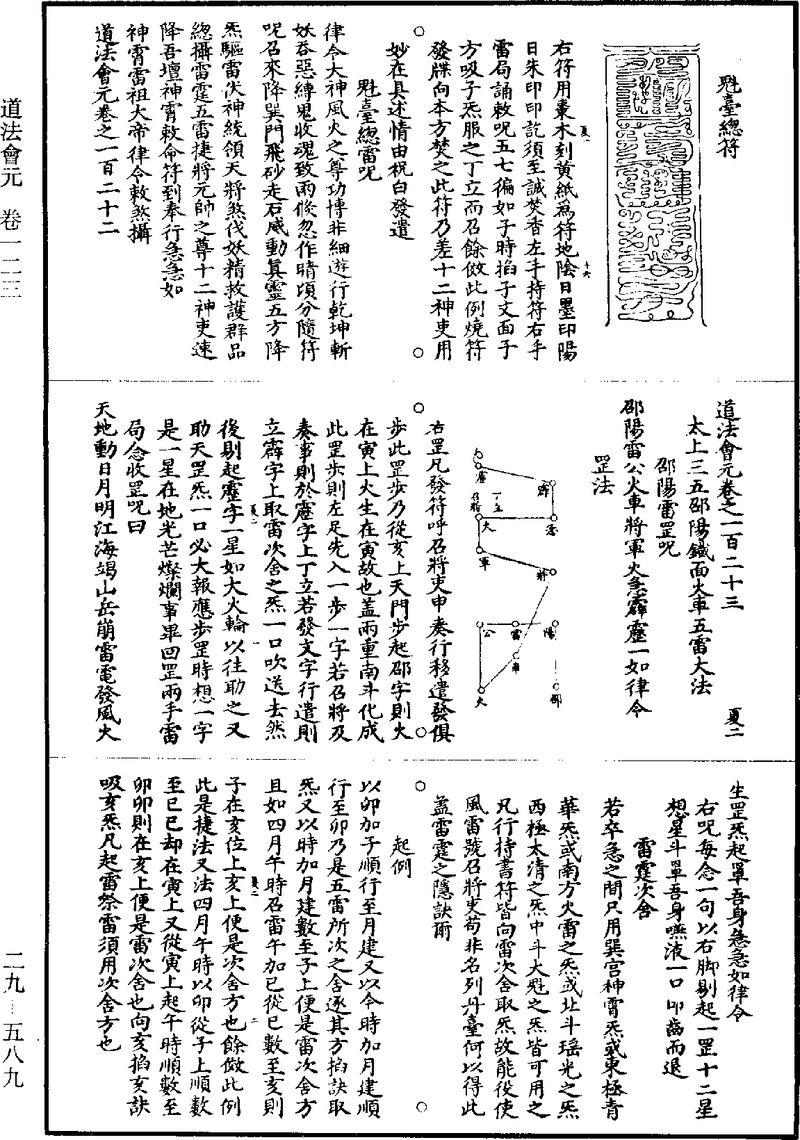 道法會元　卷一二三
二九—五八九
魁臺總符
右符用棗木刻黃紙爲符地陰日墨印陽
日朱印印訖須至誠焚香左手持符右手
雷局誦敕呪五七徧如子時掐子文面子
方吸子炁服之丁立而召餘倣此例燒符
發牒向本方焚之此符乃差十二神吏用
妙在具述情由祝白發遣
魁臺總雷呪
律令大神風火之尊功博非細遊行乾坤斬
妖吞惡縛鬼收魂致雨倐忽作晴頃分隨符
呪召來降巽門飛砂走石威動眞靈五方降
炁驅雷伐神統領天將煞伐妖精救護群品
總攝雷霆五雷捷將元帥之尊十二神吏速
降吾壇神霄敕命符到奉行急急如
神霄雷祖大帝律令敕煞攝
道法會元卷之一百二十二
道法會元卷之一百二十三　夏二
太上三五邵陽鐵面火車五雷大法
邵陽雷罡呪
邵陽雷公火車將軍火急霹靂一如律令
罡法
靂
霹
丁立
召將
火
急
軍
將
公
雷
陽
車
火
邵
右罡凡發符呼召將吏申奏行移遣發俱
步此罡步乃從亥上天門步起邵字則火
在寅上火生在寅故也蓋兩重南斗化成
此罡步則左足先入一步一字若召將及
奏事則於靂字上丁立若發文字行遣則
立霹字上取雷次舍之炁一口吹送去然
後剔起靂字一星如大火輪以往助之又
助天罡炁一口必大報應步罡時想一字
是一星在地光芒燦爛事畢回罡兩手雷
局念收罡呪曰
天地動日月明江海竭山岳崩雷電發風火
生罡炁起罩吾身急急如律令
右呪每念一句以右脚剔起一罡十二星
想星斗罩吾身嚥液一口叩齒而退
雷霆次舍
若卒急之間只用巽宮神霄炁或東極青
華炁或南方火雷之炁或北斗瑤光之炁
西極太清之炁中斗大魁之炁皆可用之
凡行持書符皆向雷次舍取炁故能役使
風雷號召將吏苟非名列丹臺何以得此
蓋雷霆之隱訣爾
起例
以卯加子順行至月建又以今時加月建順
行至卯乃是五雷所次之舍逐其方掐訣取
炁又以時加月建數至子上便是雷次舍方
且如四月午時召雷午加巳從巳數至亥則
子在亥位上亥上便是次舍方也餘倣此例
此是捷法又法四月午時以卯從子上順數
至巳巳却在寅上又從寅上起午時順數至
卯卯則在亥上便是雷次舍也向亥掐亥訣
吸亥炁凡起雷祭雷須用次舍方也